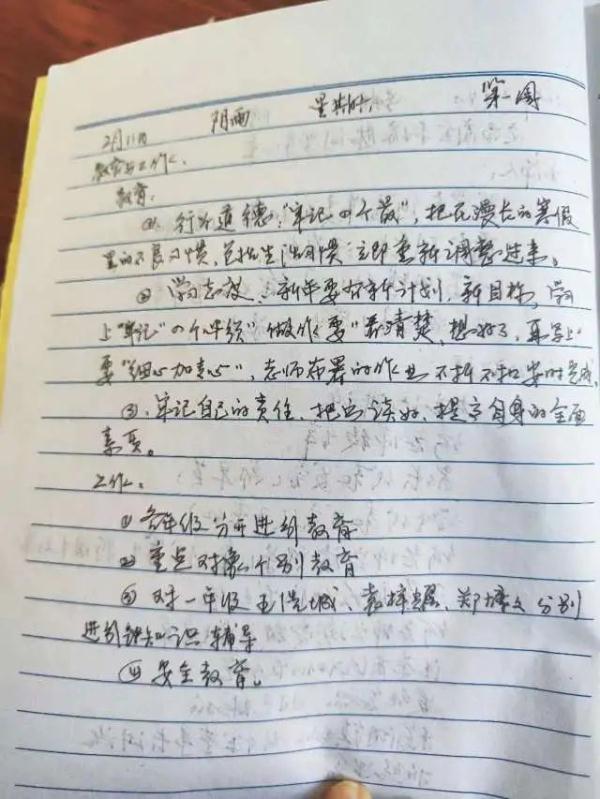 2月11日 阴雨 星期 第一周
教育与工作:
教育:
①、行为道德:“牢记四个最”,把在漫长的寒假
里的不良习惯,包括生活习惯 立即重新调整过来。
② 学习 :新年要有新计划,新目标。学习
上“牢记”四个必须“做作业要”看清楚,想好了,再写上”
要“细心加专心”,老师布署的作业不折不扣按时完成。
③、牢记自己的责任、把书读好、提高自身的全面
素质。
工作:
① 各年级分开进行教育
② 重点对像个别教育
③ 对一年级王 城、袁梓 、郑 文分别
进行 知识辅导
④ 安全教育。